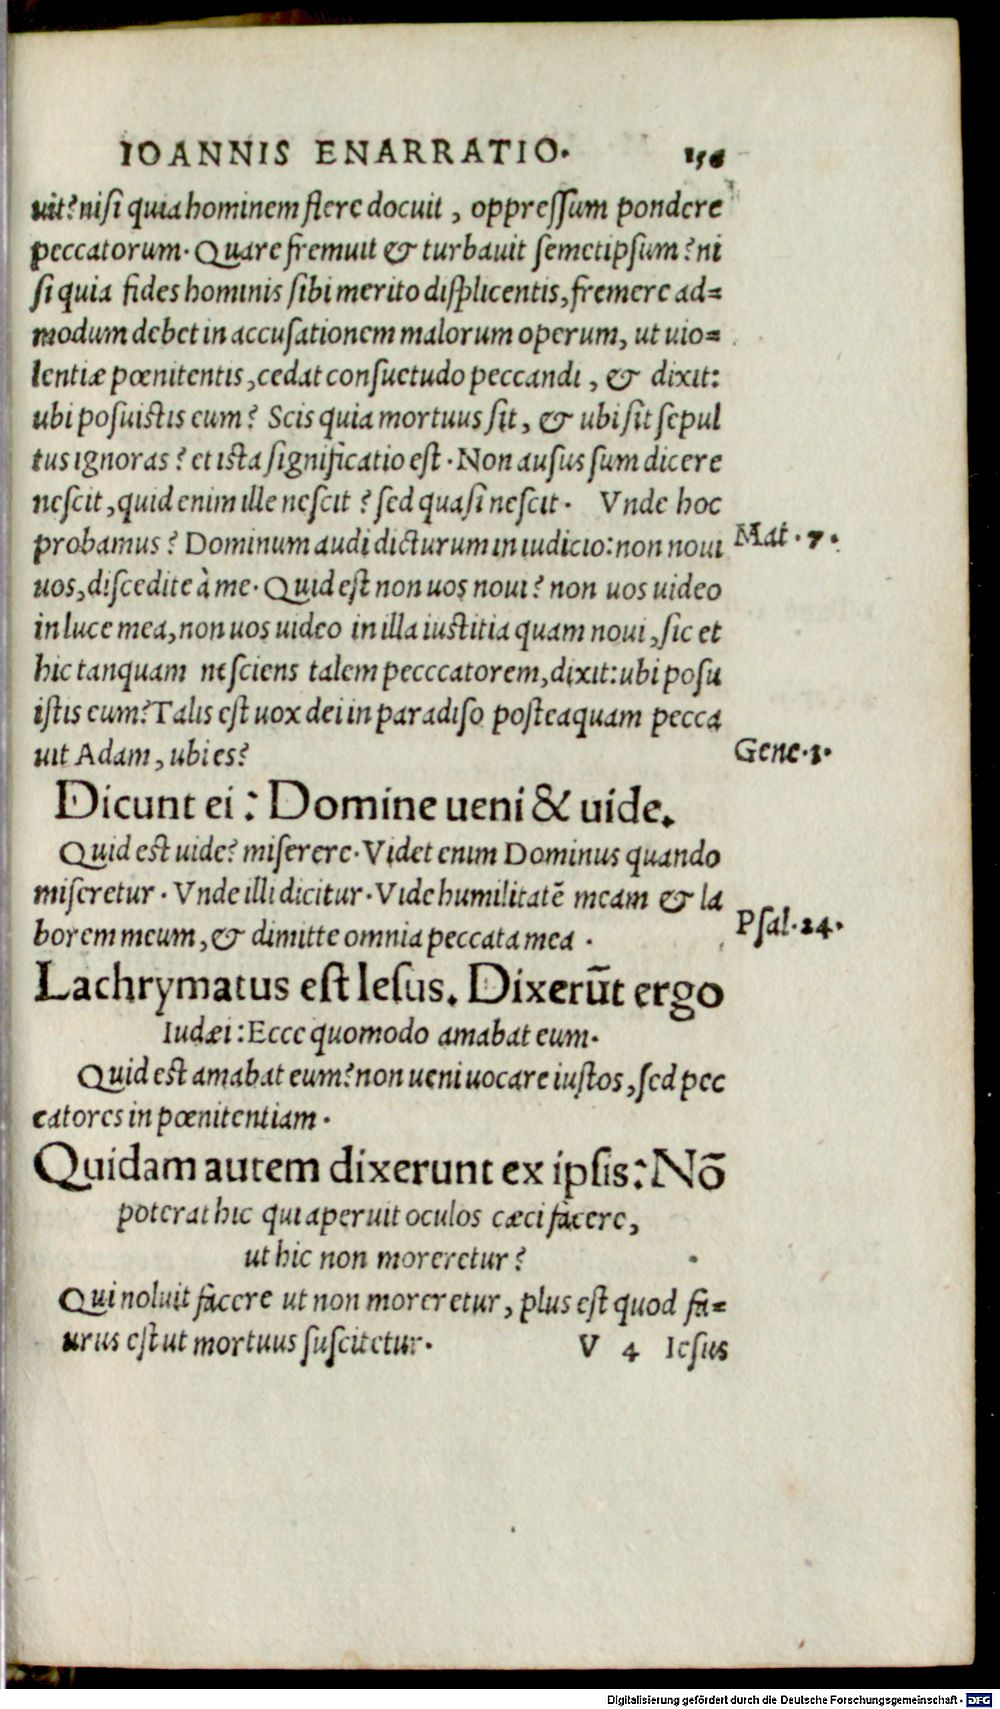 IOANNIS ENARRATIO. 156
uit? nisi quia hominem flere docuit, oppressum pondere
peccatorum. Quare fremuit & turbauit semetipsum? ni
si quia fides hominis sibi merito displicentis, fremere ad=
modum debet in accusationem malorum operum, ut uio=
lentiæ pœnitentis, cedat consuetudo peccandi, & dixit:
ubi posuistis eum? Scis quia mortuus sit, & ubi sit sepul
tus ignoras? et ista significatio est. Non ausus sum dicere
nescit, quid enim ille nescit? sed quasi nescit. Vnde hoc
probamus? Dominum audi dicturum in iudicio: non noui
Mat. 7.
uos, discedite à me. Quid est non uos noui? non uos uideo
in luce mea, non uos uideo in illa iustitia quam noui, sic et
hic tanquam nesciens talem pecccatorem, dixit: ubi posu
istis eum? Talis est uox dei in paradiso posteaquam pecca
uit Adam, ubi es?
Gene. 3.
Dicunt ei: Domine ueni & uide.
Quid est uide? miserere. Videt enim Dominus quando
miseretur. Vnde illi dicitur. Vide humilitatē meam & la
Psal. 24.
borem meum, & dimitte omnia peccata mea.
Lachrymatus est Iesus. Dixerūt ergo
Iudæi: Ecce quomodo amabat eum.
Quid est amabat eum? non ueni uocare iustos, sed pec
catores in pœnitentiam.
Quidam autem dixerunt ex ipsis: Nō
poterat hic qui aperuit oculos cæci facere,
ut hic non moreretur?
Qui noluit facere ut non moreretur, plus est quod fa=
urus est ut mortuus suscitetur. V 4 Iesus
Digitalisierung gefördert durch die Deutsche Forschungsgemeinschaft - DFG